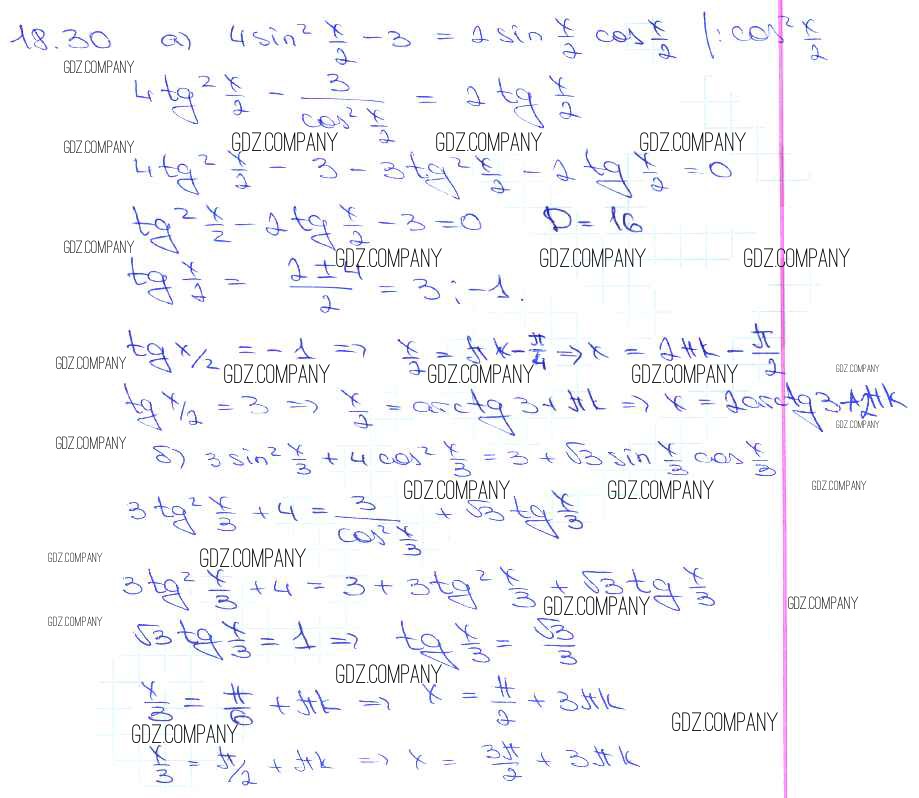 18.30 а) 4sin² x/2 − 3 = 2 sin x/2 cos x/2 |: cos² x/2
GDZ.COMPANY
4tg² x/2 − 3/(cos² x/2) = 2 tg x/2
GDZ.COMPANY GDZ.COMPANY GDZ.COMPANY GDZ.COMPANY
4tg² x/2 − 3 − 3tg² x/2 − 2tg x/2 = 0
tg² x/2 − 2tg x/2 − 3 = 0 D = 16
GDZ.COMPANY GDZ.COMPANY GDZ.COMPANY GDZ.COMPANY
tg x/2 = (2 ± 4)/2 = 3; −1.
tg x/2 = −1 => x/2 = πk − π/4 => x = 2πk − π/2
GDZ.COMPANY GDZ.COMPANY GDZ.COMPANY GDZ.COMPANY GDZ.COMPANY
tg x/2 = 3 => x/2 = arctg 3 + πk => x = 2arctg 3 + 2πk
GDZ.COMPANY
GDZ.COMPANY
б) 3 sin² x/3 + 4 cos² x/3 = 3 + √3 sin x/3 cos x/3
GDZ.COMPANY GDZ.COMPANY GDZ.COMPANY
3 tg² x/3 + 4 = 3/(cos² x/3) + √3 tg x/3
GDZ.COMPANY GDZ.COMPANY
3 tg² x/3 + 4 = 3 + 3tg² x/3 + √3 tg x/3
GDZ.COMPANY GDZ.COMPANY
GDZ.COMPANY
√3 tg x/3 = 1 => tg x/3 = √3/3
GDZ.COMPANY
x/3 = π/6 + πk => x = π/2 + 3πk
GDZ.COMPANY GDZ.COMPANY
x/3 = π/2 + πk => x = 3π/2 + 3πk